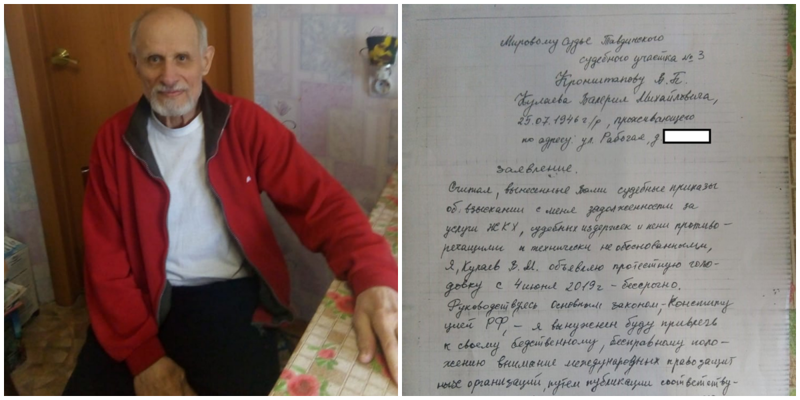 Мировому судье Тавдинского
судебного участка № 3
Кронштапову В.П.
Кулаева Валерия Михайловича,
25.07.1946 г/р, проживающего
по адресу ул. Рабочая, д
Заявление.
Считая, вынесенные Вами судебные приказы
об взыскании с меня задолженности за
услуги ЖКХ, судебных издержек и пени противо-
речащими и технически не обоснованными,
Я, Кулаев В.М. объявляю протестную голо-
довку с 4 июня 2019г - бессрочно.
Руководствуясь основным законом, Конститу
цией РФ, - я вынужден буду привлечь
к своему бедственному, бесправному поло-
жению внимание международных правозащит
ных организаций, путём публикации соответству-